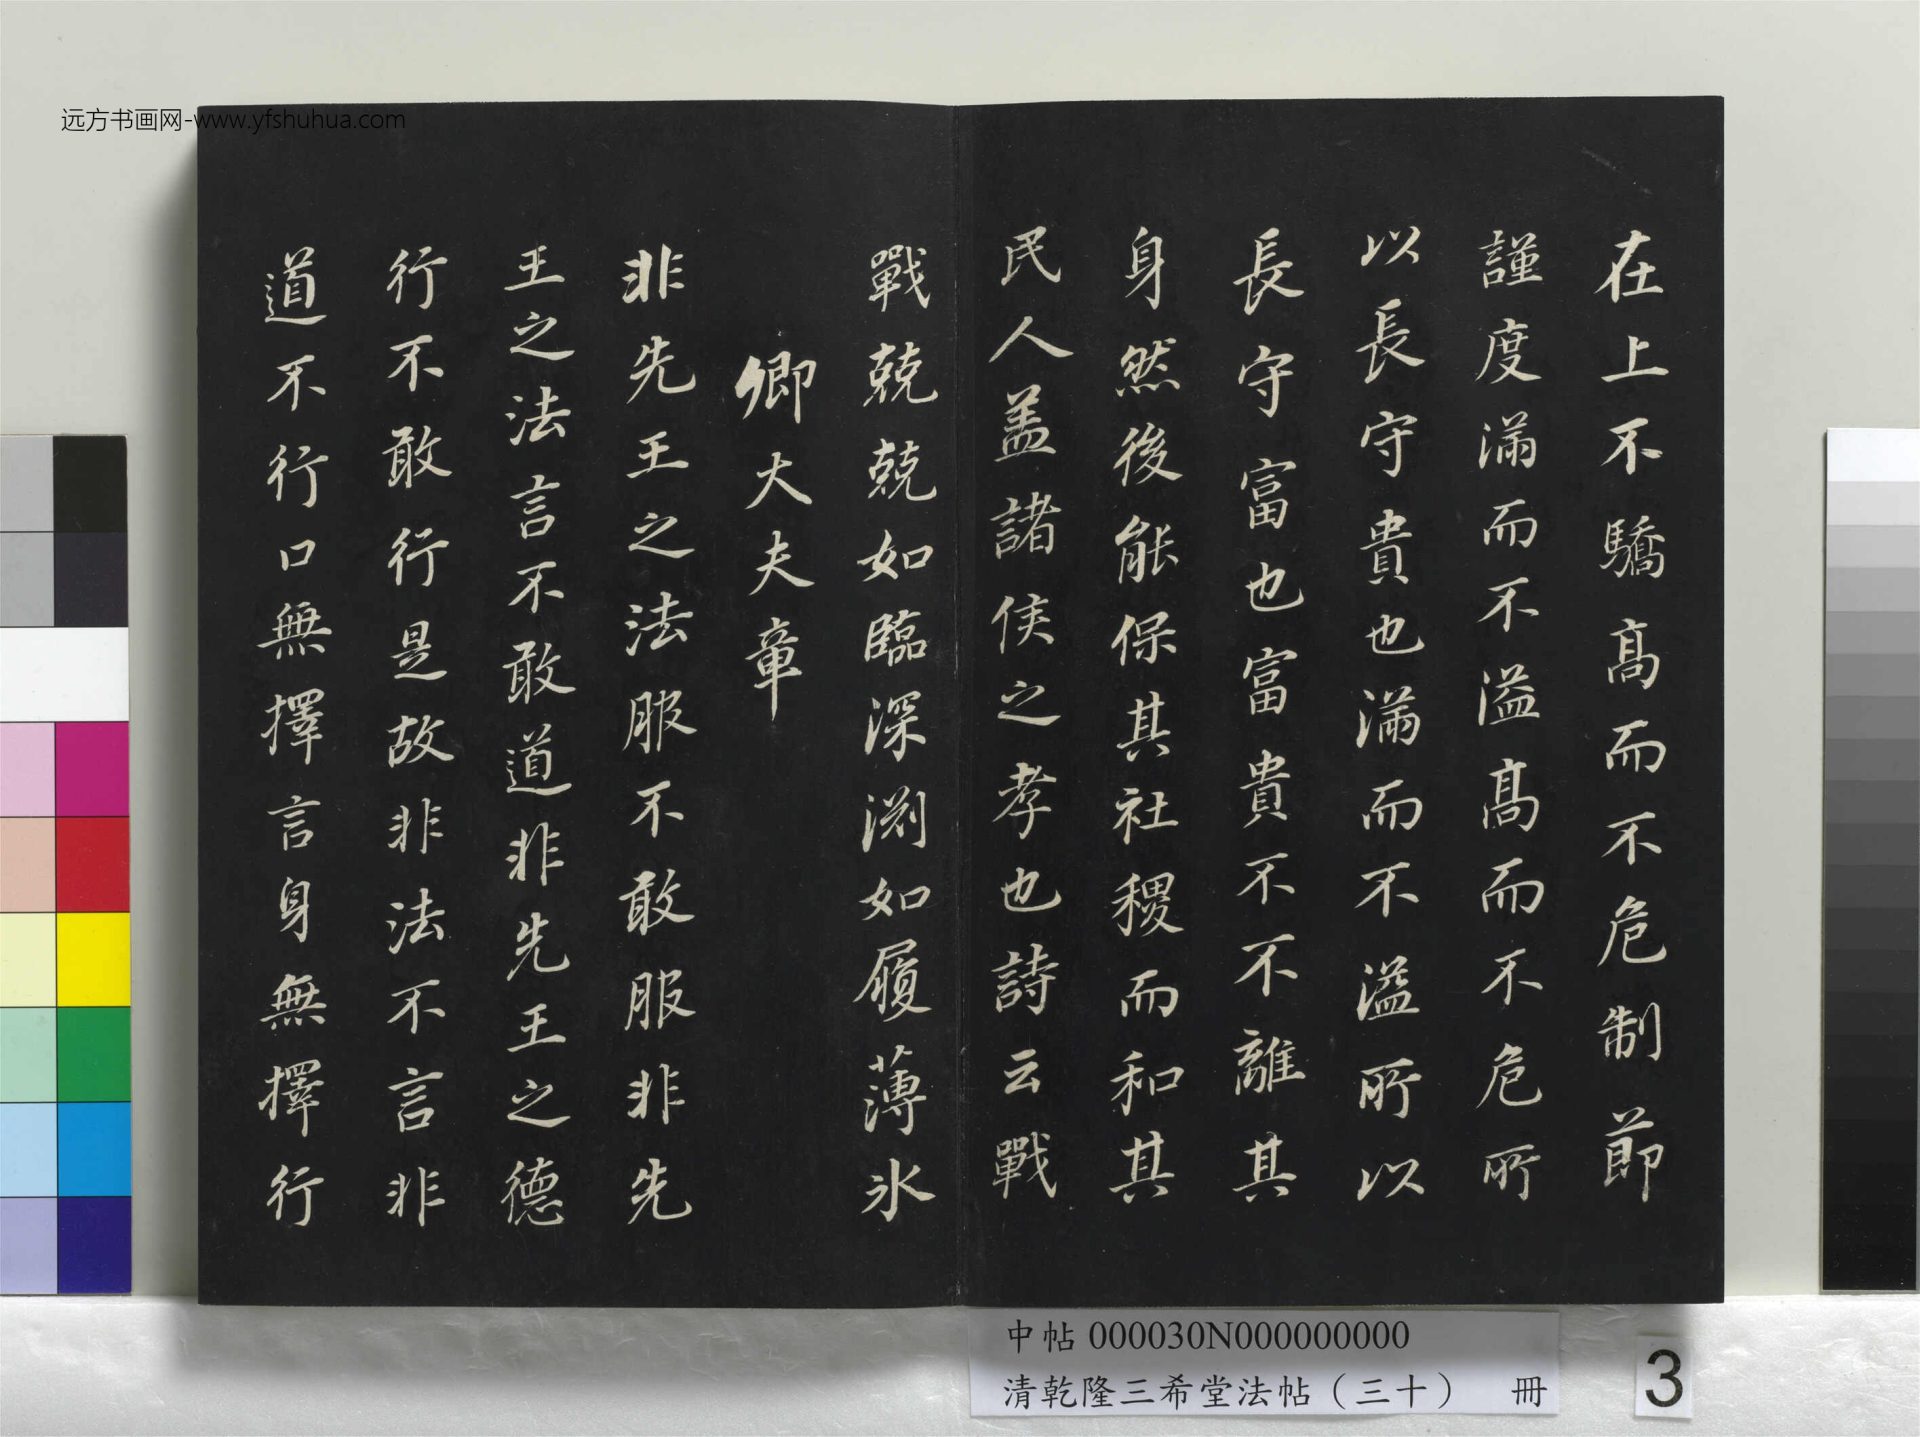 远方书画网-www.yfshuhua.com
在上不驕髙而不危制節
謹度滿而不溢髙而不危所
以長守貴也滿而不溢所以
長守富也富貴不不離其
身然後能保其社稷而和其
民人盖諸侯之孝也詩云戰
戰兢兢如臨深渕如履薄氷
卿大夫章
非先王之法服不敢服非先
王之法言不敢道非先王之德
行不敢行是故非法不言非
道不行口無擇言身無擇行
中帖 000030N000000000
清乾隆三希堂法帖（三十） 冊
3